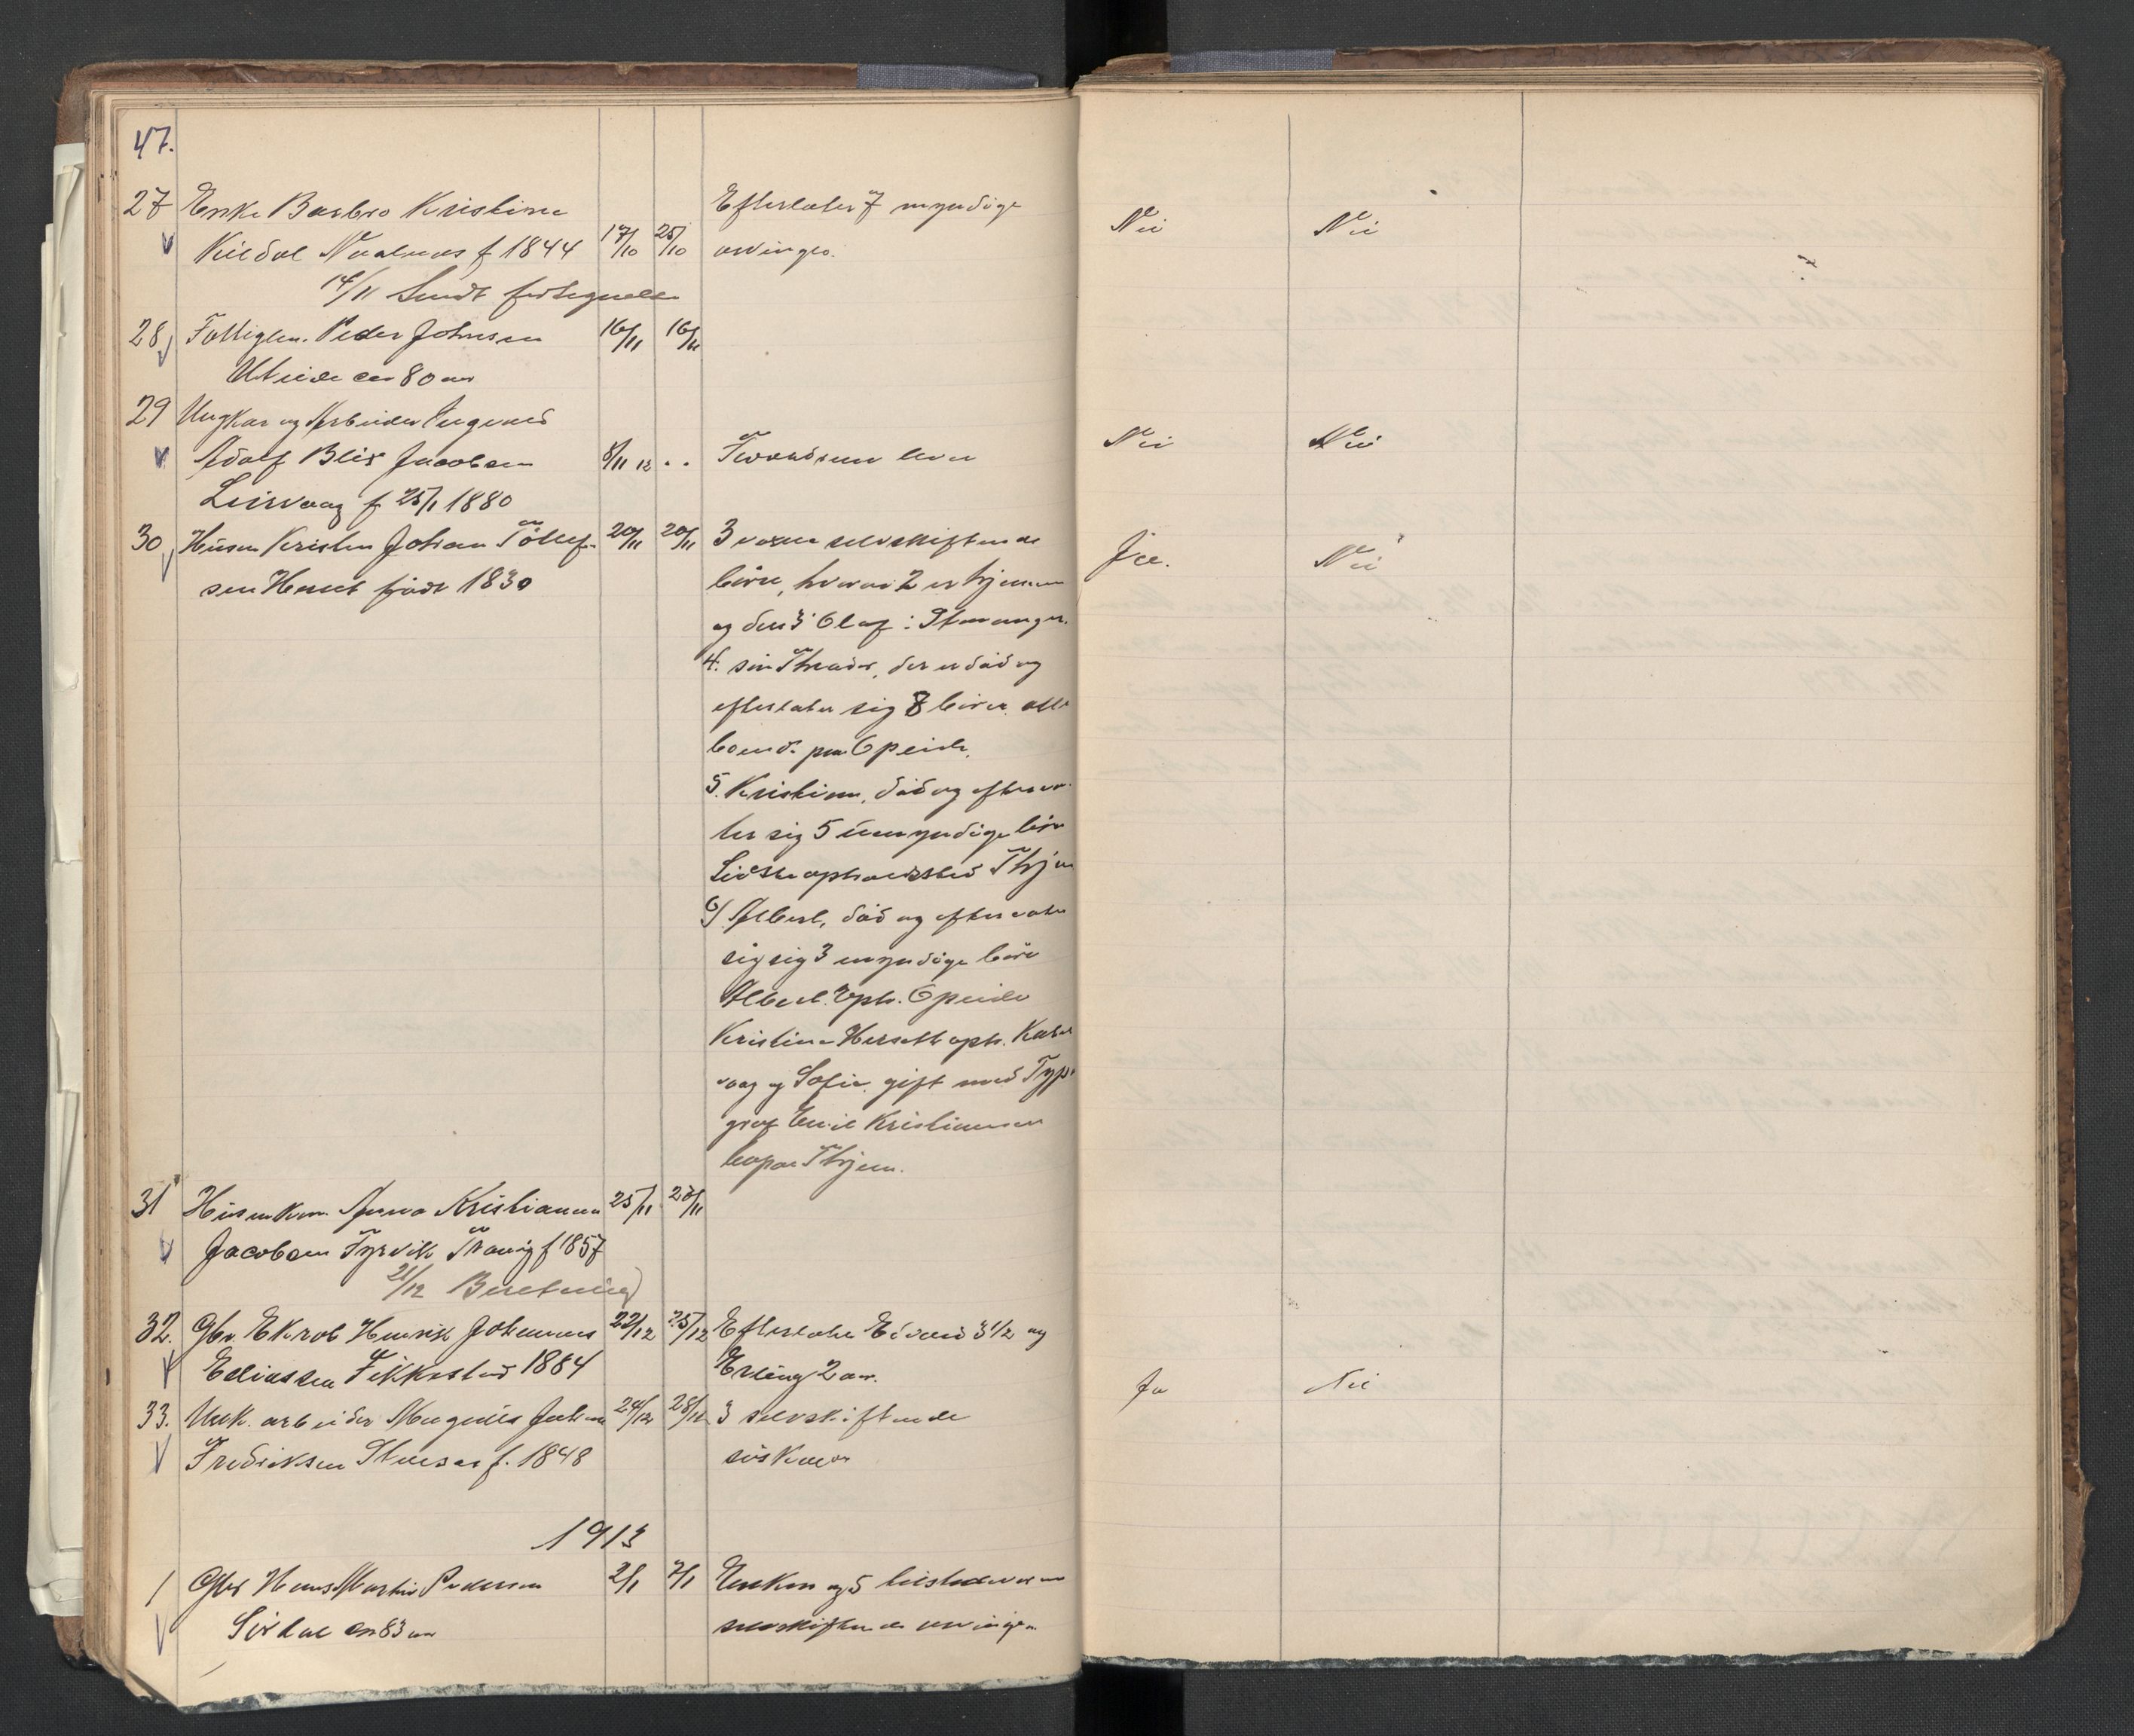 47.
27 Enke Barbro Kristine Efterlater 7 myndige
Kildal f 1844 17/10 25/10 arvinger. Nei Nei
14/11 Sendt fortegnelse
28 Fattiglem. Peder Johnsen 16/11 16/11
Uteide ca 80 aar
29 Ungkar og Arbeider Ingvald
Adolf Blix Jacobsen 8/11 12 . . Forældrene lever Nei Nei
Leirvaag f 25/1 1880
30 Husm Kristen Johan Tollef- 20/11 20/11 3 voxne selvskiftende Ja. Nei
sen født 1830 børn, hvorav 2 er hjemme
og den 3 Olaf i Stavanger.
4. søn Theodor, der er død og
efterlater sig 8 børn alle
boende paa Opeide.
5. Kristine, død og efterla-
ter sig 5 umyndige børn
Sidste opholdssted Thjem
6/ Albert, død og efterlater
sig sig 3 myndige børn
Albert. Oph. Opeide
Kristine oph.
vaag og Sofie gift med Typo-
graf Emil Kristiansen
bopæl Thjem.
31 Husmkone Anna Kristianna 25/11 27/11
Jacobsen Tyrvik f 1857
21/12 Beretning
32. Gbr. Henrik Johannes 22/12 25/12 Efterlater Edvard 3 1/2 og
Eliassen 1884 Erling 2 aar. Ja Nei
33. Unk. arbeider Magnus Johan 24/12 28/12 3 selvskiftende
Fredriksen f. 1848 søskende
1913
1 Gbr Hans Martin Pedersen 2/1 7/1 Enken og 5
ca 83 aar selvskiftende arvinger